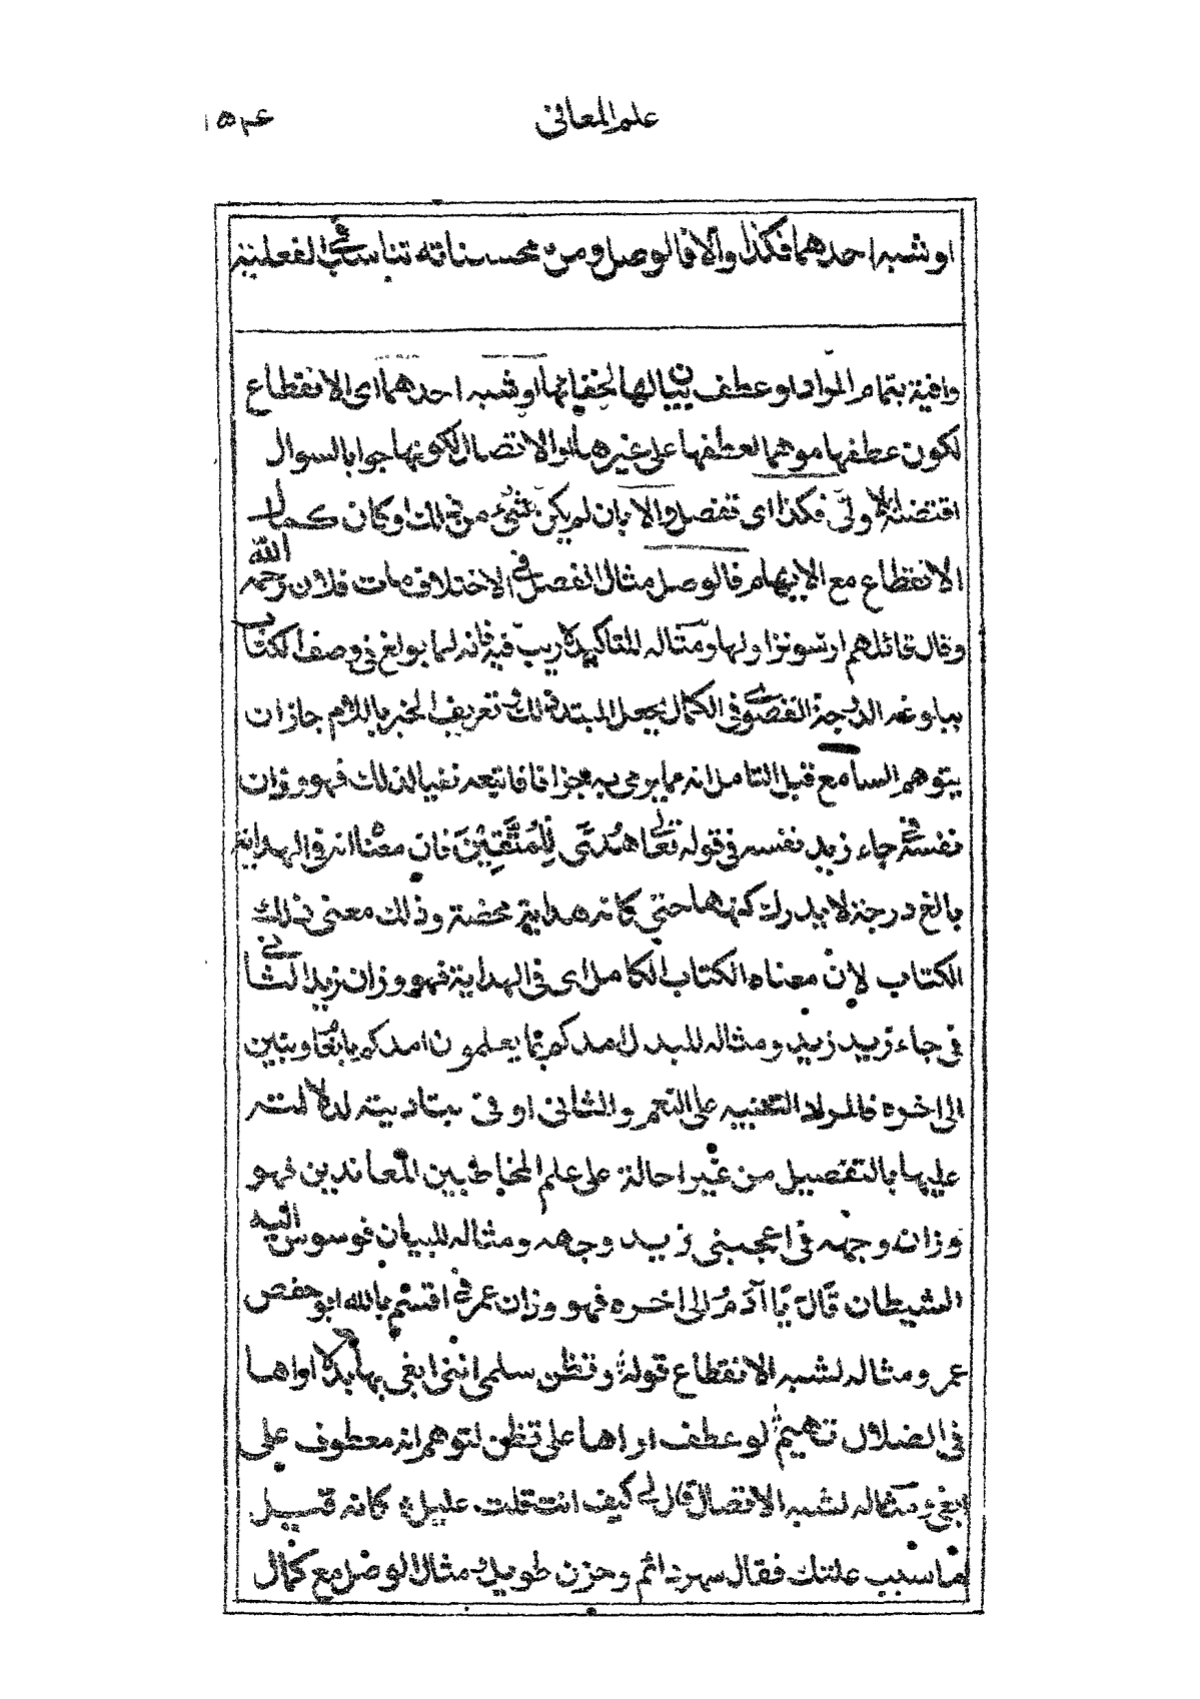 علم المعانى
او شبه احدهما فكذا والا فالوصل ومن محسناته تناسب فى الفعلية
وافية بتمام المراد او عطف بيان لها لخفائها او شبه احدهما اى الانقطاع
لكون عطفها موهما لعطفها على غيرها او الاتصال لكونها جوابا لسوال
اقتضته الاولى فكذا اى تفصل والا بان لم يكن شئ من ذلك او كان كمال
الانقطاع مع الايهام فالوصل مثال الفصل فى الاختلاف مات فلان رحمه الله
وقال قائلهم ارسوا نزاولها ومثاله للتاكيد لا ريب فيه فانه لما بولغ فى وصف الكتاب
ببلوغه الدرجة القصوى فى الكمال بجعل المبتدأ ذلك وتعريف الخبر باللام جاز ان
يتوهم السامع قبل التامل انه مما يرمى به جزافا فاتبعه نفيا لذلك فهو وزان
نفسه فى جاء زيد نفسه فى قوله تعالى هُدًى لِلْمُتَّقِيْنَ فان معناه انه فى الهداية
بالغ درجة لا يدرك كنهها حتى كانه هداية محضة وذلك معنى ذلك
الكتاب لان معناه الكتاب الكامل اى فى الهداية فهو وزان زيد الثانى
فى جاء زيد زيد ومثاله للبدل امدكم بما يعلمون امدكم بانعام وبنين
الى اخره فالمراد التنبيه على النعم والثانى اوفى بتاديته لدلالته
عليها بالتفصيل من غير احالة على علم المخاطبين المعاندين فهو
وزان وجهه فى اعجبنى زيد وجهه ومثاله للبيان فوسوس اليه
الشيطان قَالَ يَا آدَمُ الى اخره فهو وزان عمر فى اقسم بالله ابو حفص
عمر ومثاله لشبه الانقطاع قوله وتظن سلمى اننى ابغى بها بدلا اراها
فى الضلال تهيم لو عطف اراها على تظن لتوهم انه معطوف على
ابغى ومثاله لشبه الاتصال قال لى كيف انت قلت عليل كانه قيل
ما سبب علتك فقال سهر دائم وحزن طويل ومثال الوصل مع كمال